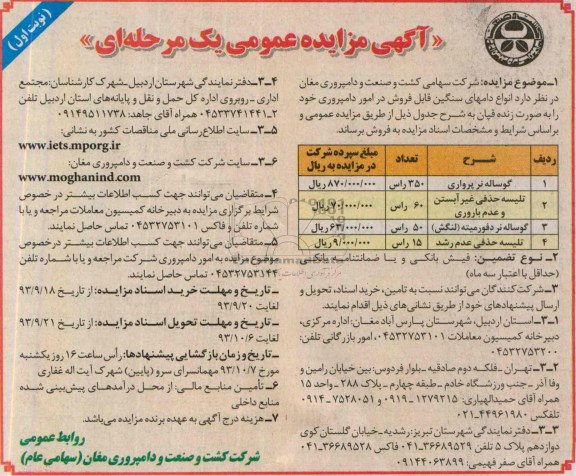 (نوبت اول)
«آگهی مزایده عمومی یک مرحله‌ای»
۱–موضوع مزایده: شرکت سهامی کشت و صنعت و دامپروری مغان
در نظر دارد انواع دامهای سنگین قابل فروش در امور دامپروری خود
را به صورت زنده قپان به شرح جدول ذیل از طریق مزایده عمومی و
براساس شرایط و مشخصات اسناد مزایده به فروش برساند.
ردیف شــرح تعداد مبلغ سپرده شرکت در مزایده به ریال
۱ گوساله نر پرواری ۳۵۰ راس ۸۷۰/۰۰۰/۰۰۰ ریال
۲ تلیسه حذفی غیر آبستن و عدم باروری ۶۰ راس ۷۰/۰۰۰/۰۰۰ ریال
۳ گوساله نر دفورمیته (لنگش) ۵۰ راس ۶۳/۰۰۰/۰۰۰ ریال
۴ تلیسه حذفی عدم رشد ۱۵ راس ۹/۰۰۰/۰۰۰ ریال
۲– نوع تضمین: فیش بانکی و یا ضمانتنامه بانکی
(حداقل با اعتبار سه ماه)
۳–شرکت کنندگان می‌توانند نسبت به تامین، خرید اسناد، تحویل و
ارسال پیشنهادهای خود از طریق نشانی‌های ذیل اقدام نمایند.
۳–۱–استان اردبیل، شهرستان پارس آباد مغان: اداره مرکزی،
دبیرخانه کمیسیون معاملات ۰۴۵۳۲۷۵۳۱۰۱، امور بازرگانی تلفن:
۰۴۵۳۲۷۵۳۲۰۰
۳–۲–تهران – فلکه دوم صادقیه–بلوار فردوس: بین خیابان رامین و
وفا آذر – جنب ورزشگاه خادم – طبقه چهارم – پلاک ۲۸۸–واحد ۱۵
همراه آقای حمیدالهیاری: ۱۲۷۹۲۱۵–۰۹۱۹ و ۷۵۲۸۰۵۱–۰۹۱۴
تلفکس ۴۴۹۶۱۹۸۰–۰۲۱
۳–۳–دفتر نمایندگی شهرستان تبریز: رشدیه–خیابان گلستان کوی
دوازدهم پلاک ۵ تلفن ۳۶۶۸۹۵۲۹–۰۴۱ فاکس ۳۶۶۸۹۵۲۸–۰۴۱
همراه آقای صفر فهیمی: ۰۹۱۴۴۰۶۳۸۹۹
۳–۴–دفتر نمایندگی شهرستان اردبیل–شهرک کارشناسان: مجتمع
اداری – روبروی اداره کل حمل و نقل و پایانه‌های استان اردبیل تلفن
۰۴۵۳۳۷۴۱۴۴۱–۲ همراه آقای جاهد: ۰۹۱۴۹۵۱۱۷۳۸
۳–۵–سایت اطلاع رسانی ملی مناقصات کشور به نشانی:
www.iets.mporg.ir
۳–۶–سایت شرکت کشت و صنعت و دامپروری مغان:
www.moghanind.com
۴–متقاضیان می‌توانند جهت کسب اطلاعات بیشتر در خصوص
شرایط برگزاری مزایده به دبیرخانه کمیسیون معاملات مراجعه و یا با
شماره تلفن و فاکس ۰۴۵۳۲۷۵۳۱۰۱ تماس حاصل نمایند.
۵–متقاضیان می‌توانند جهت کسب اطلاعات بیشتر درخصوص
موضوع مزایده به امور دامپروری شرکت مراجعه و یا با شماره تلفن
۰۴۵۳۲۷۵۳۱۴۴ تماس حاصل نمایند.
–تاریخ و مهلت خرید اسناد مزایده: از تاریخ ۹۳/۹/۱۸
لغایت ۹۳/۹/۲۰
–تاریخ و مهلت تحویل اسناد مزایده: از تاریخ ۹۳/۹/۲۱
لغایت ۹۳/۱۰/۶
–تاریخ و زمان بازگشایی پیشنهادها: رأس ساعت ۱۶ روز یکشنبه
مورخ ۹۳/۱۰/۷ مهمانسرای سرو (پایین) شهرک آیت اله غفاری
۶–تأمین منابع مالی: از محل درآمدهای پیش‌بینی شده
منابع داخلی
۷–هزینه درج آگهی به عهده برنده مزایده می‌باشد.
روابط عمومی
شرکت کشت و صنعت و دامپروری مغان (سهامی عام)